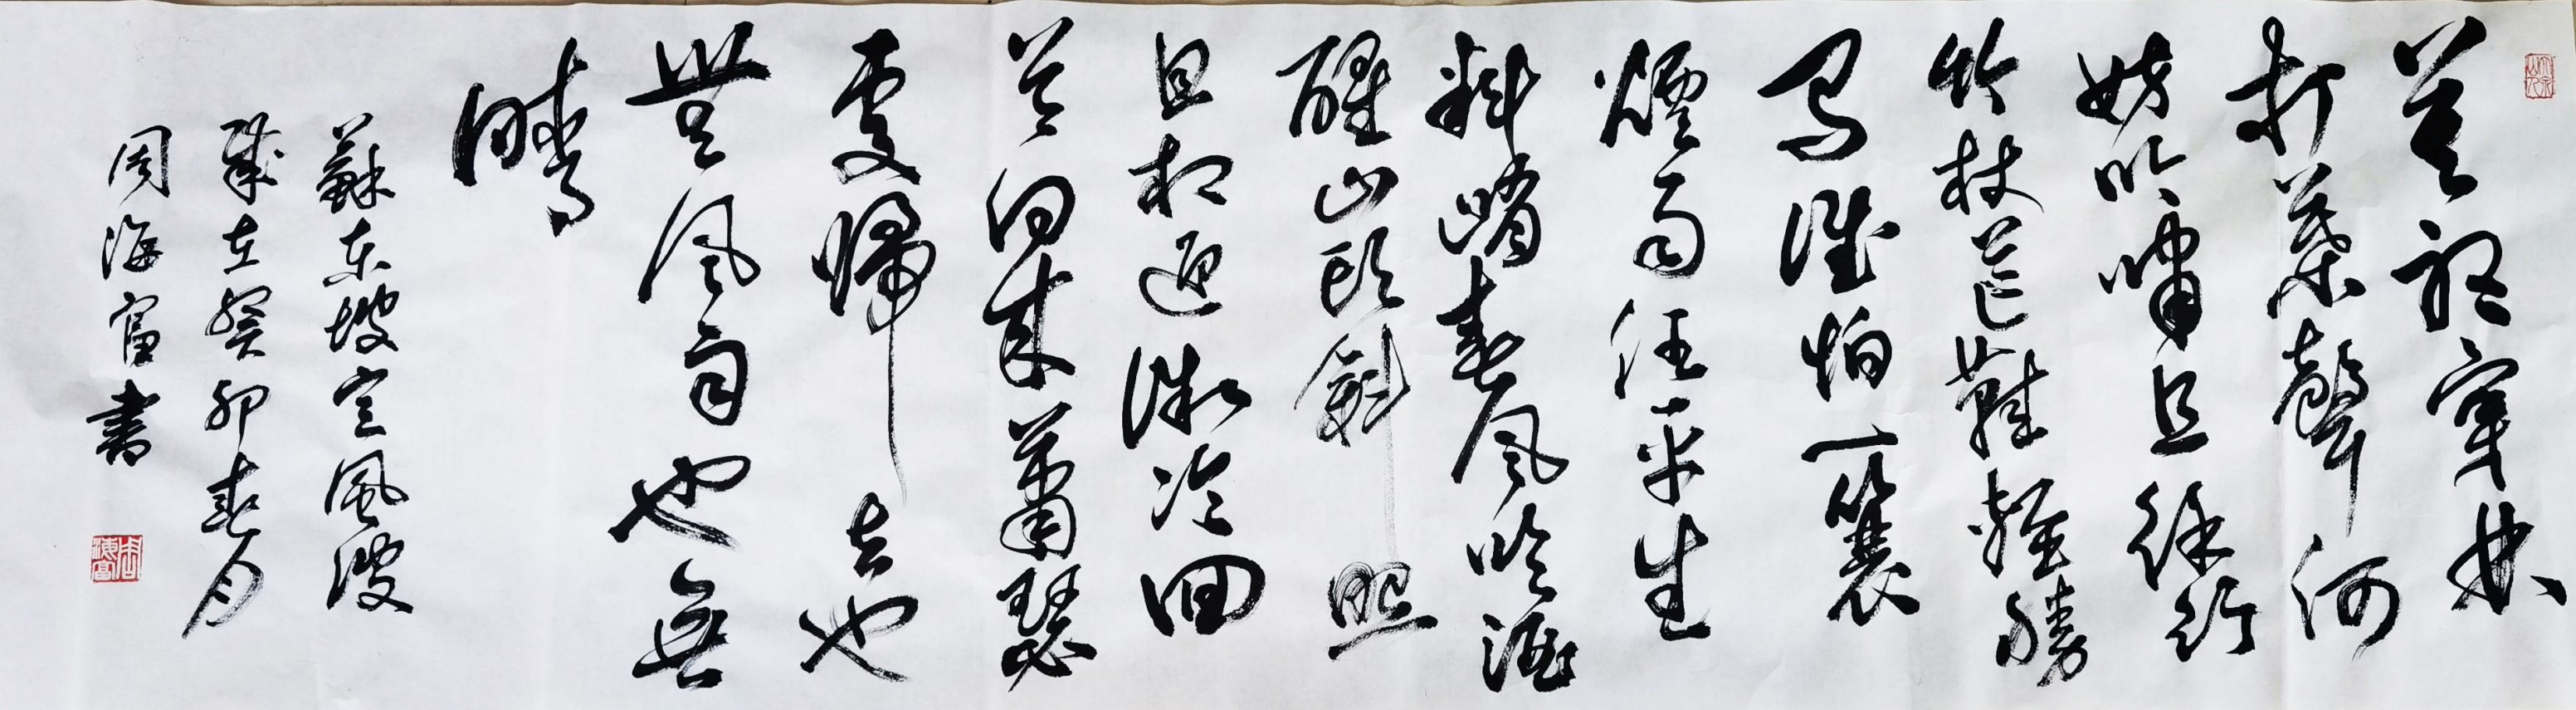 莫聽穿林
打葉聲何
妨吟嘯且徐行
竹杖芒鞋輕勝
馬誰怕一蓑
煙雨任平生
料峭春風吹酒
醒山頭斜照
且相迎微冷回
首向來蕭瑟
處歸去也
無風雨也無
晴
蘇東坡定風波
歲在癸卯春月
周海富書
周海富